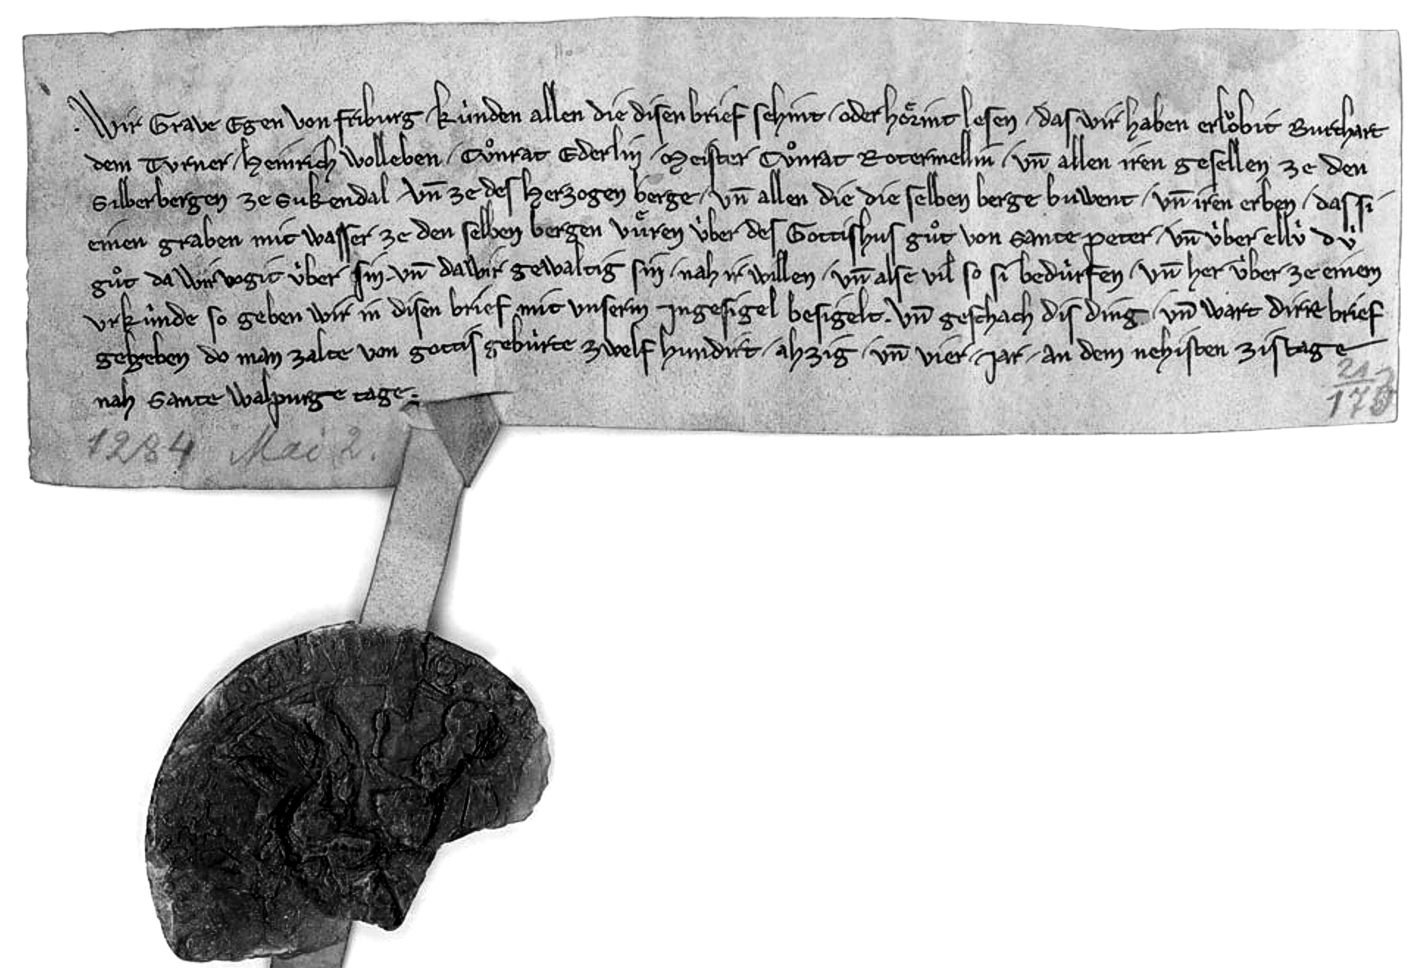 Wir Grave Egen von friburg / ku̍nden allen die disen brief sehint / oder hoͤrint lesen / das wir haben erloͮbit Burchart
dem Turner / Heinrich Wolleben / Cuͦnrat Ederlin / Meister Cuͦnrat Rotermellin / vn̄ allen iren gesellen ze den
Silberbergen ze Sukendal / vn̄ ze des Herzogen berge / vn̄ allen die die selben berge buwent / vn̄ iren erben / das si
einen graben mit wasser ze den selben bergen vuͤren u̍ber des Gottishus guͦt von Sante peter / vn̄ u̍ber ellu̍ du̍
guͦt da wir vogit u̍ber sin / vn̄ da wir gewaltig sin / nah ir willen / vn̄ alse vil so si bedu̍rfen / vn̄ her u̍ber ze einem
vrku̍nde so geben wir in disen brief mit vnserm Ingesigel besigelt. vn̄ geschach dis ding / vn̄ wart dirre brief
gegeben do man zalte von gottis gebu̍rte zwelf hundirt / ahzig / vn̄ vier / Jar / an dem nehisten zistage
nah Sante Walpurge tage.
21
173
1284 Mai 2.